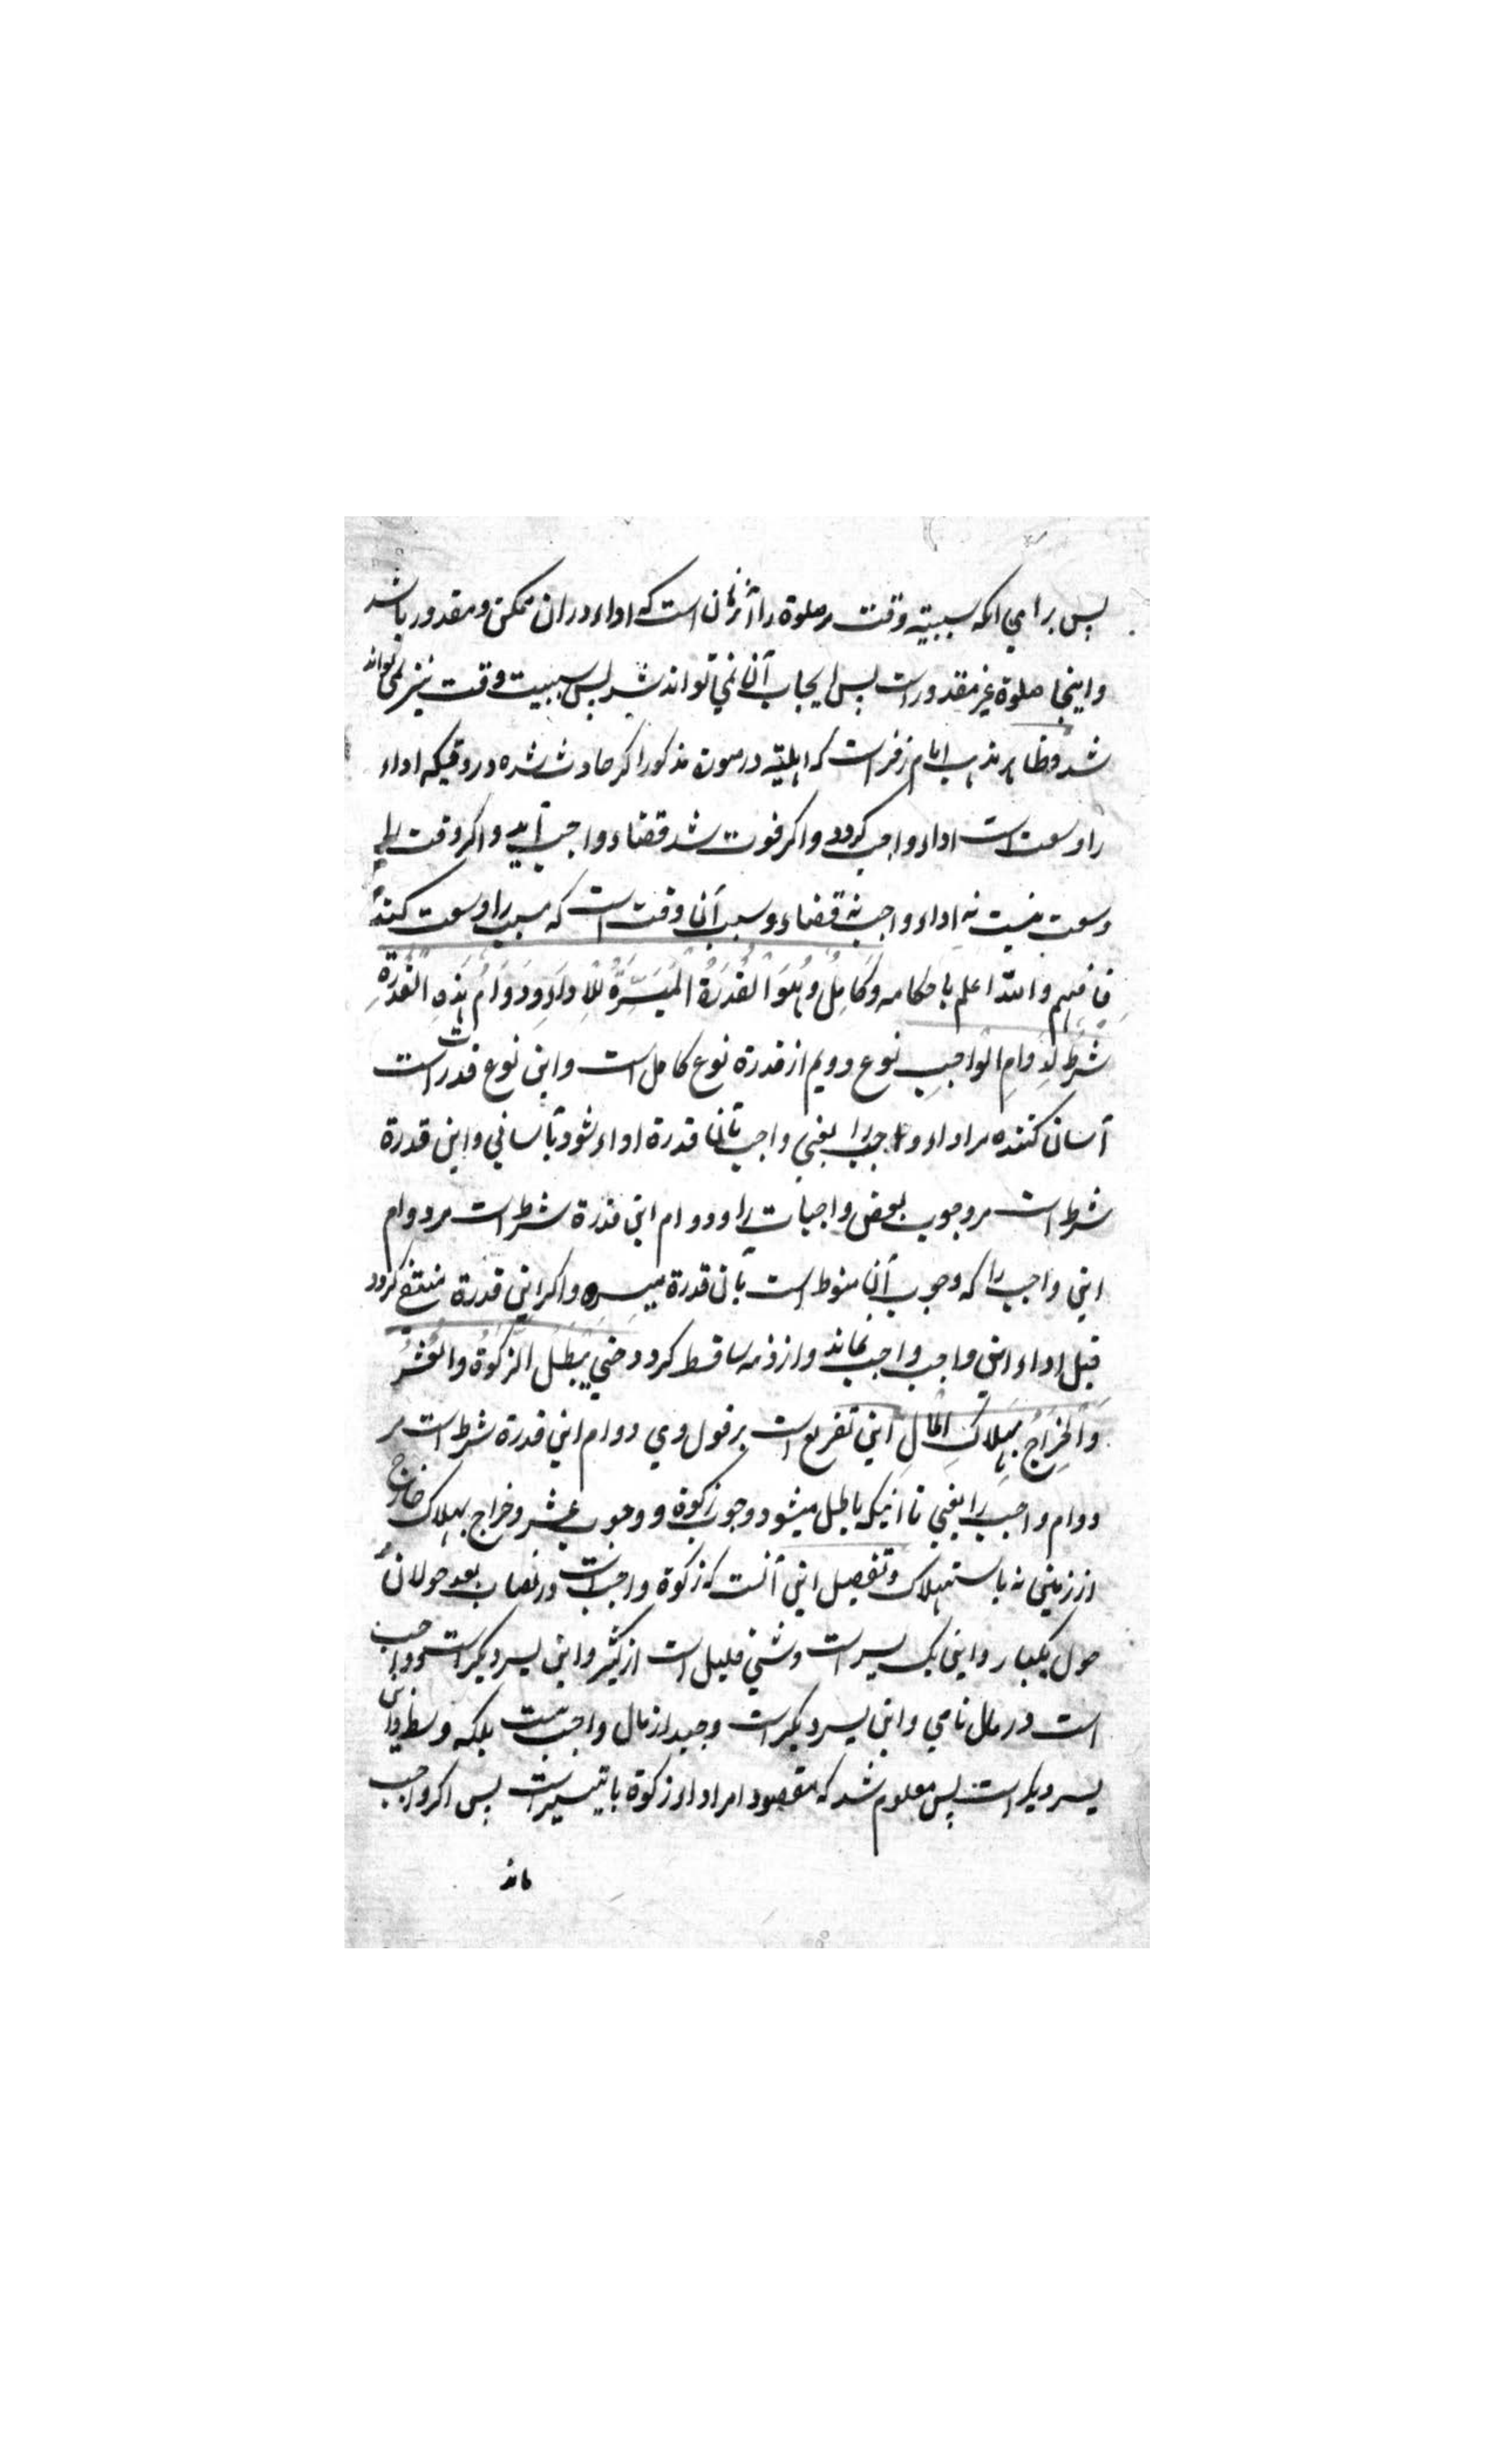 پس براي انکه سببیته وقت مر صلوة را اثر نان است که اداء دران ممکن و مقدور باشد
و اینجا صلوة غیر مقدور است پس ایجاب آن نمي تواند شد پس سببیت وقت نیز نمي تواند
شد و ظاهر مذهب امام زفر است که اهلیته در صورت مذکور اکر حادث شده در وقتیکه اداء
را وسعت است اداء واجب کردد و اکر فوت شد قضاء واجب آید و اکر وقت را
وسعت نیست نه اداء واجب نه قضاء و سبب آن وقت است که سبب را وسعت کند
فافهم والله اعلم باحکامه وَكَامِلٌ وَهُوَ الْقُدْرَةُ الْمُيَسِّرَةُ لِلْاَدَاءِ وَدَوَامُ هٰذِهِ الْقُدْرَةِ
شَرْطٌ لِدَوَامِ الْوَاجِبِ نوع دویم از قدرة نوع کامل است و این نوع قدرت است
آسان کننده مر اداء واجب را یعني واجب بآن قدرة اداء شود بآساني و این قدرة
شرط است مر وجوب بعض واجبات را و دوام این قدرة شرط است مر دوام
این واجب را که وجوب آن منوط است بآن قدرة میسره و اکر این قدرة منتفي کردد
قبل اداء این واجب واجب نماند و از ذمه ساقط کردد حتي يَبْطُلَ الزَّكٰوةُ وَالْعُشْرُ
وَالْخَرَاجُ بِهَلَاكِ الْمَالِ این تفریع است بر قول وي دوام این قدرة شرط است مر
دوام واجب را یعني تا اینکه باطل میشود وجوب زکوة و وجوب عشر و خراج بهلاک خارج
از زمین نه باستهلاک و تفصیل این آنست که زکوة واجب است در نصاب بعد حولان
حول یکبار و این یک یسر است و شي قلیل است از کثیر و این یسر دیکر است و واجب
است در مال نامي و این یسر دیکر است و جید از مال واجب نیست بلکه وسط و این
یسر دیکر است پس معلوم شد که مقصود امر اداء زکوة با تیسیر است پس اکر واجب
ماند